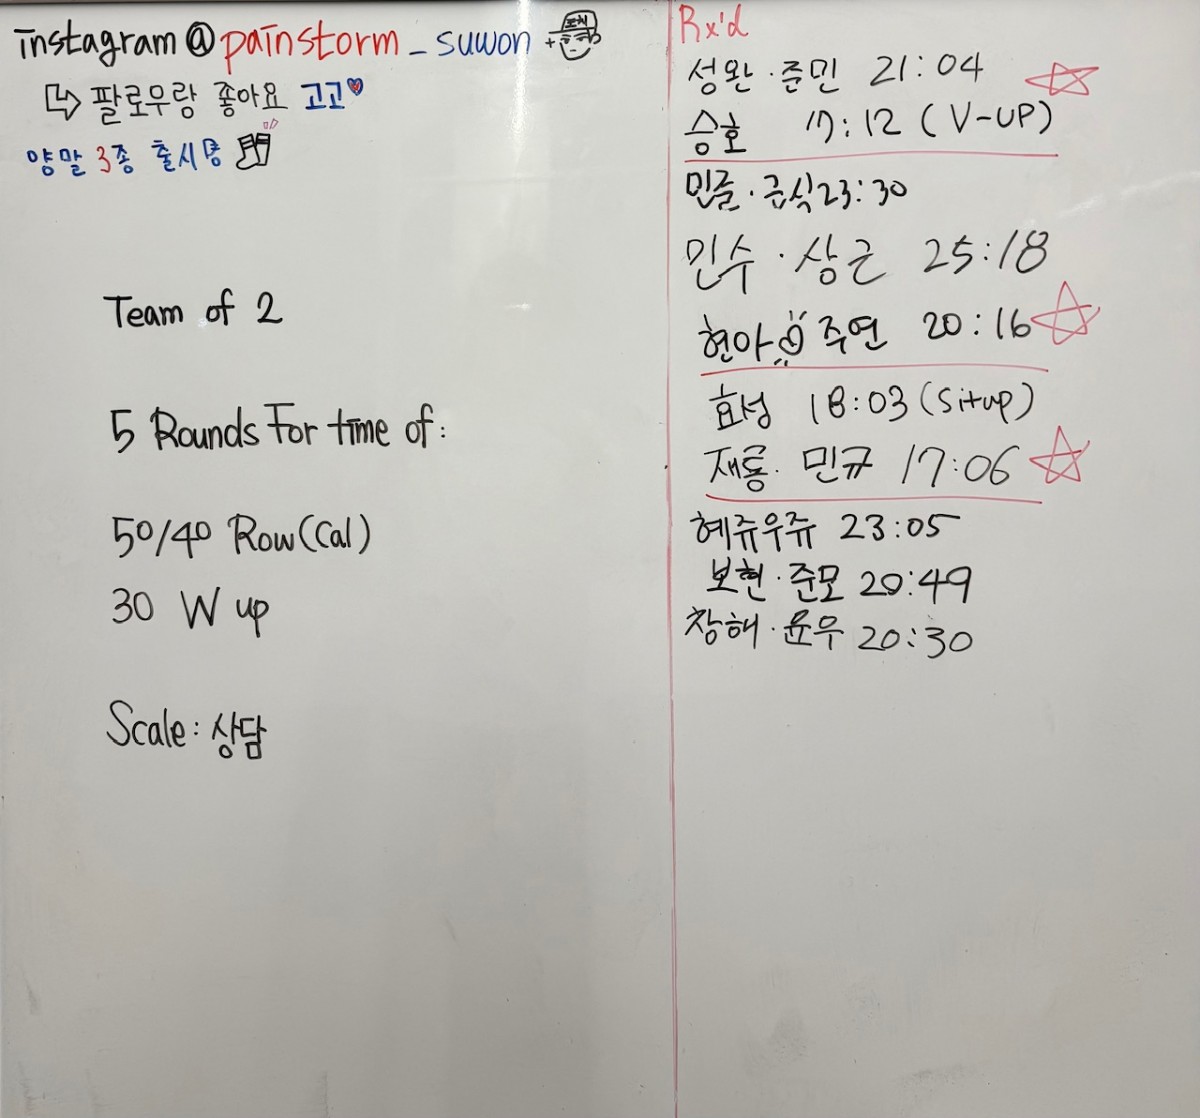 instagram @painstorm_suwon
팔로우랑 좋아요 고고
양말 3종 출시 룡
Team of 2
5 Rounds For time of:
50/40 Row(Cal)
30 W up
Scale: 상담
Rx'd
성완·준민 21:04
승호 17:12 (V-UP)
민줄·금식 23:30
민수·상근 25:18
현아 주연 20:16
효성 18:03 (Situp)
재룡·민규 17:06
혜쥬우쥬 23:05
보현·준모 20:49
창해·윤우 20:30